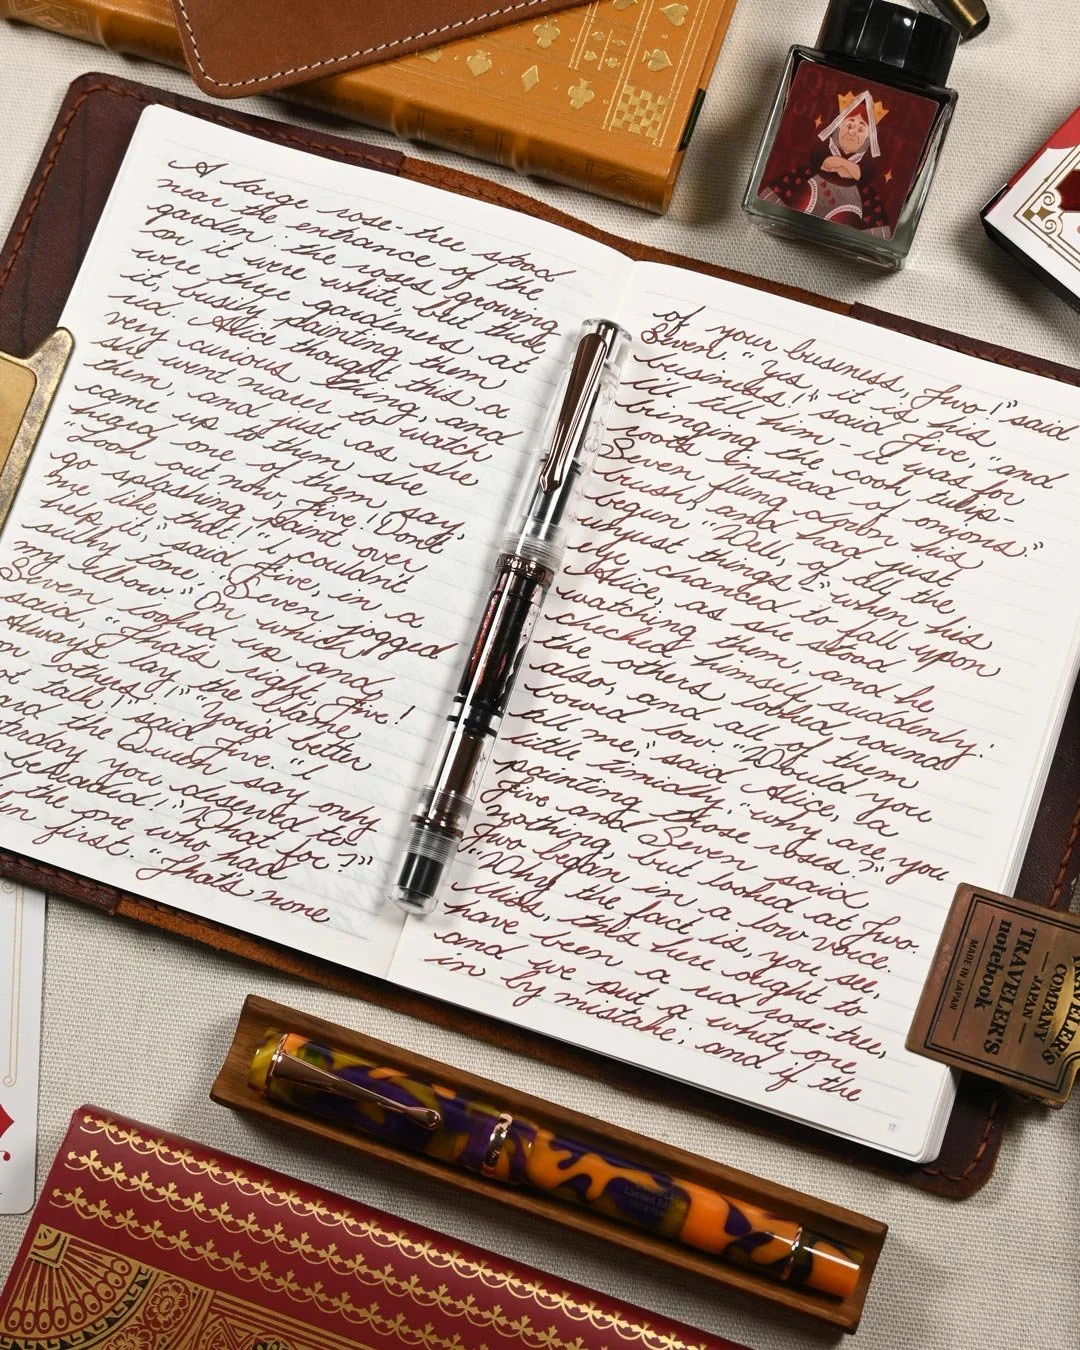 A large rose-tree stood
near the entrance of the
garden: the roses growing
on it were white, but there
were three gardeners at
it, busily painting them
red. Alice thought this a
very curious thing, and
she went nearer to watch
them, and just as she
came up to them she
heard one of them say,
"Look out now, Five! Don't
go splashing paint over
me like that!" "I couldn't
help it," said Five, in a
sulky tone. "Seven jogged
my elbow." On which
Seven looked up and
said, "That's right, Five!
Always lay the blame
on others!" "You'd better
ot talk!" said Five. "I
ard the Queen say only
terday you deserved to
beheaded!" "What for?"
the one who had
en first. "That's none
of your business, Two!" said
Seven. "Yes, it is his
business!" said Five, "and
I'll tell him - it was for
bringing the cook tulip-
roots instead of onions."
Seven flung down his
brush, and had just
begun "Well, of all the
unjust things-" when his
eye chanced to fall upon
Alice, as she stood
watching them, and he
checked himself suddenly:
the others looked round
also, and all of them
bowed low. "Would you
tell me," said Alice, a
little timidly, "why are you
painting those roses?"
Five and Seven said
nothing, but looked at Two.
Two began in a low voice.
"Why the fact is, you see,
Miss, this here ought to
have been a red rose-tree,
and we put a white one
in by mistake; and if the
17
TRAVELER'S
COMPANY
JAPAN
TRAVELER'S
notebook
MADE IN JAPAN